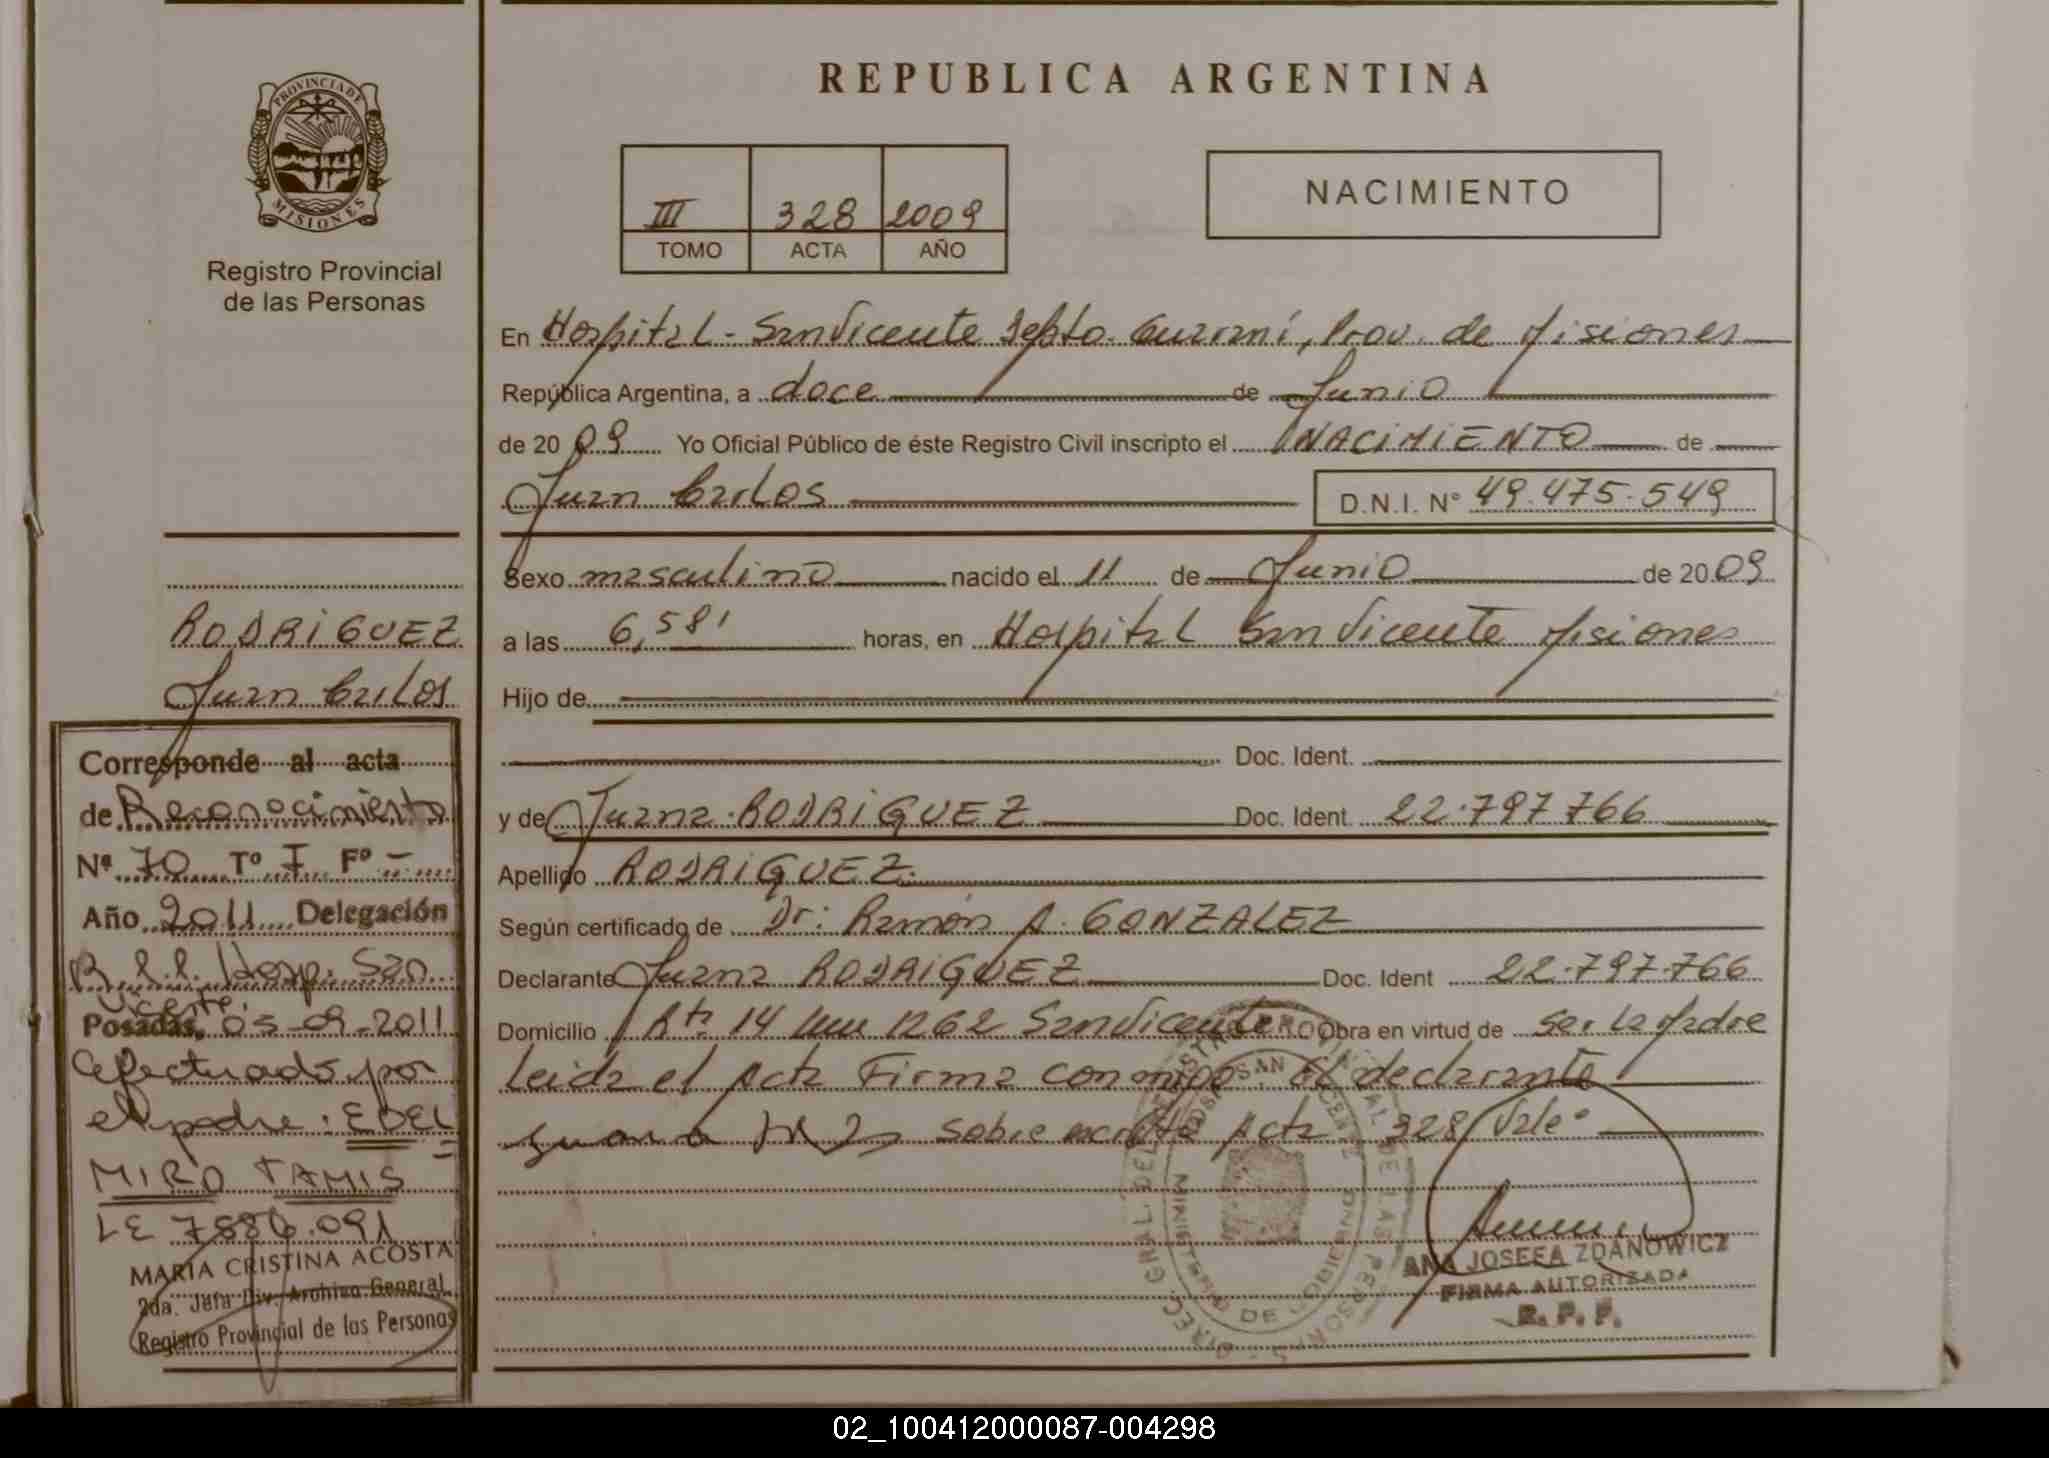 REPUBLICA ARGENTINA
PROVINCIA DE
MISIONES
Registro Provincial
de las Personas
III 328 2009
TOMO ACTA AÑO
NACIMIENTO
En Hospital - San Vicente Depto. Guaraní, Prov. de Misiones
República Argentina, a doce de Junio
de 20 09 Yo Oficial Público de éste Registro Civil inscripto el NACIMIENTO de
Juan Carlos D.N.I. N° 49.475.549
Sexo masculino nacido el 11 de Junio de 20 09
a las 6,58' horas, en Hospital San Vicente Misiones
Hijo de
Doc. Ident.
y de Juana RODRIGUEZ Doc. Ident. 22.797.766
Apellido RODRIGUEZ.
Según certificado de Dr: Ramón A. GONZALEZ
Declarante Juana RODRIGUEZ Doc. Ident 22.797.766
Domicilio Rta 14 1262 San Vicente Obra en virtud de ser la Madre
Leida el Acta Firma conmigo el declarante
sobre escrito Acta 328 Vale
ANA JOSEFA ZDANOWICZ
FIRMA AUTORIZADA
R. P. P.
MINISTERIO DE GOBIERNO
RODRIGUEZ
Juan Carlos
Corresponde al acta
de Reconocimiento
Nº 70 Tº I Fº -
Año 2011 Delegación
Hosp. San
Vicente.
Posadas, 05-09-2011
Efectuado por
el padre: EDEL
MIRO TAMIS
LE 7886.091
MARIA CRISTINA ACOSTA
2da. Jefa Div. Archivo General
Registro Provincial de las Personas
02_100412000087-004298